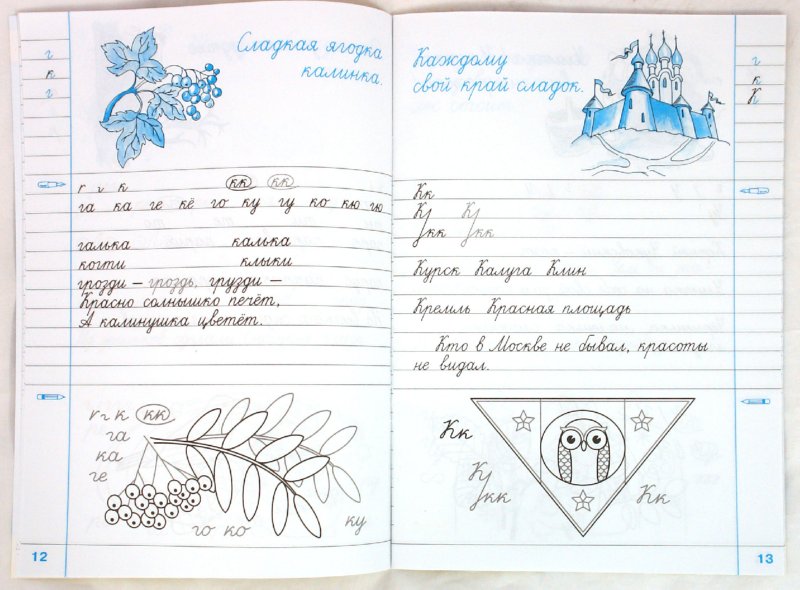 Сладкая ягодка
калинка.
г
к
г
г г к кк кк
га ка ге кё го ку гу ко кю гю
галька калька
когти клыки
грозди – гроздь, грузди –
Красно солнышко печёт,
А калинушка цветёт.
г г к кк
га
ка
ге
го ко ку
12
Каждому
свой край сладок.
г
к
К
Кк
Курск Калуга Клин
Кремль Красная площадь
Кто в Москве не бывал, красоты
не видал.
Кк
Кк
13